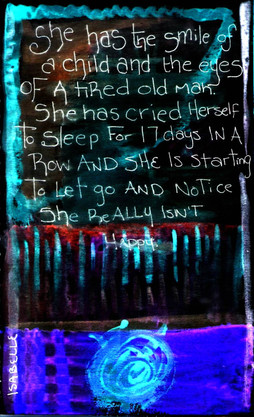 She has the smile of
a child and the eyes
OF A tiRed old man.
She has cried Herself
to Sleep For 17 days IN A
Row AND SHe Is StartiNg
to Let go AND NoTice
SHe ReALLY ISN'T
HAppy.
ISABELLE